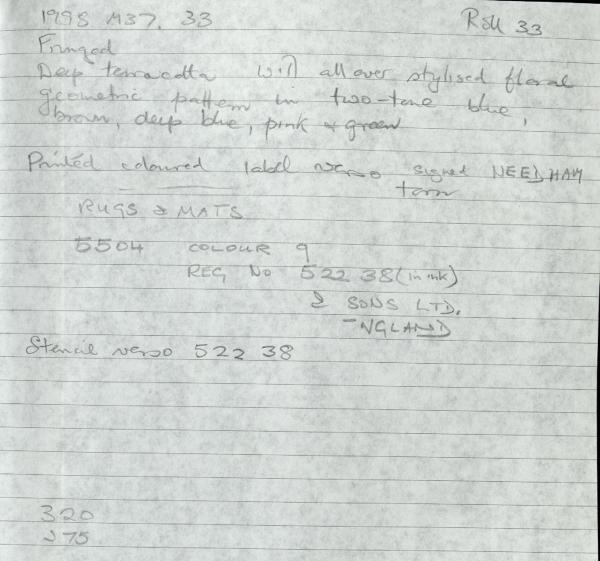 1998 M37. 33 Roll 33
Fringed
Deep terracotta with all over stylised floral
geometric pattern in two-tone blue,
brown, deep blue, pink & green
Printed coloured label verso signed NEEDHAM
torn
RUGS & MATS
5504 COLOUR 9
REG NO 522 38 (in ink)
& SONS LTD.
-NGLAND
Stencil verso 522 38
320
275